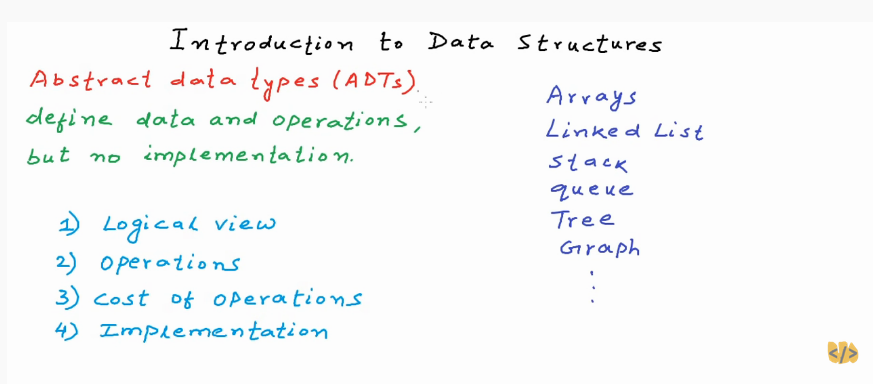 Introduction to Data Structures
Abstract data types (ADTs)
define data and operations,
but no implementation.
1) Logical view
2) operations
3) cost of operations
4) Implementation
Arrays
Linked List
Stack
queue
Tree
Graph
</>